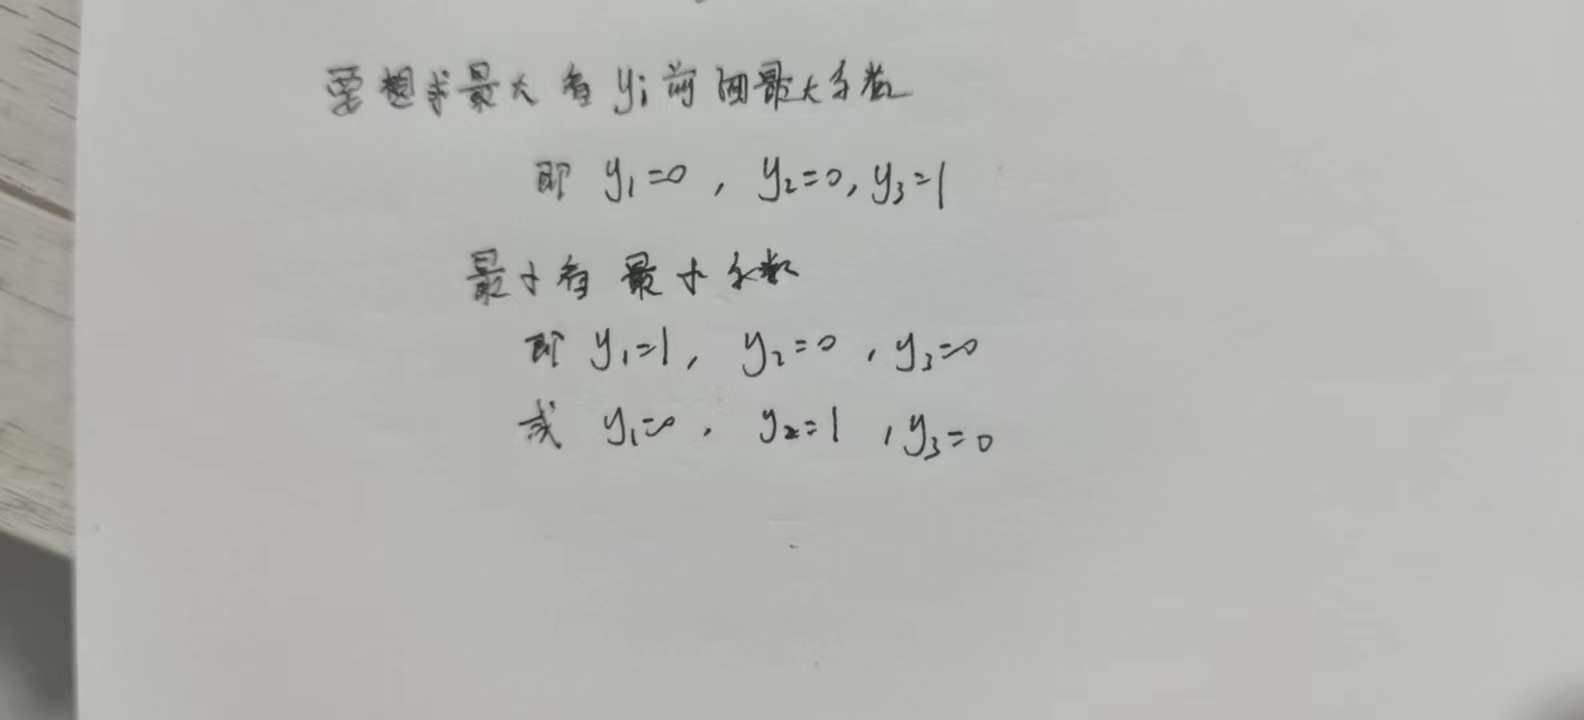 要想求最大看 yi 前面最大系数
即 y₁=0 , y₂=0, y₃=1
最小看 最小系数
即 y₁=1, y₂=0 , y₃=0
或 y₁=0 , y₂=1 , y₃=0